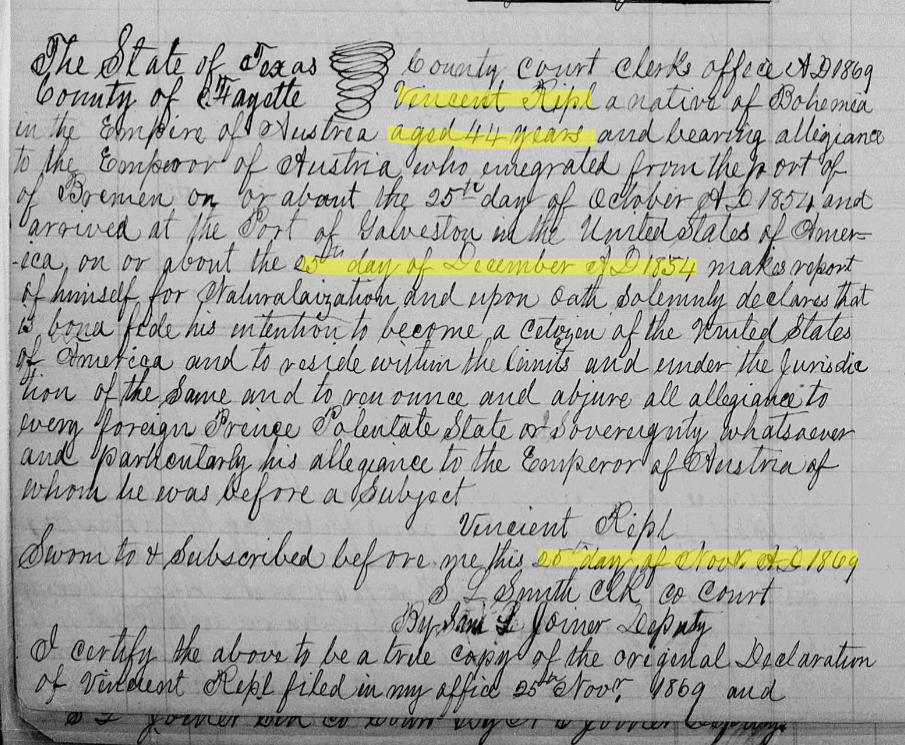 The State of Texas County Court Clerks office A.D 1869
County of Fayette Vincent Ripl a native of Bohemia
in the Empire of Austria aged 44 years and bearing allegiance
to the Emperor of Austria who emegrated from the port of
of Bremen on or about the 25th day of October A.D 1854 and
arrived at the Port of Galveston in the United States of Amer-
-ica, on or about the 25th day of December A.D 1854 makes report
of himself for Naturalaization and upon Oath Solemnly declares that
is bona fide his intention to become a Citizen of the United States
of America and to reside within the limits and under the Jurisdic
tion of the Same and to renounce and abjure all allegiance to
every foreign Prince Potentate State or Sovereignty whatsoever
and particularly his allegiance to the Emperor of Austria of
whom he was before a Subject
Vincient Ripl
Sworn to & Subscribed before me this 25th day of Novr. A.D 1869
S L Smith Clk co Court
By Saml L Joiner Deputy
I certify the above to be a true copy of the original Declaration
of Vincient Ripl filed in my office 25th Novr. 1869 and